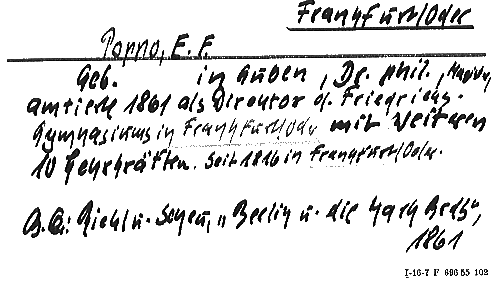 Frankfurt/Oder
Poppo, E. F.
Geb. in Guben, Dr. phil., 
amtierte 1861 als Direktor d. Friedrichs-
Gymnasiums in Frankfurt/Od. mit weiteren
10 Lehrkräften. Seit 1816 in Frankfurt/Oder.
Riehl u. Scheu, „Berlin u. die Mark Brdbg",
1861
I-16-7 F 696 55 102